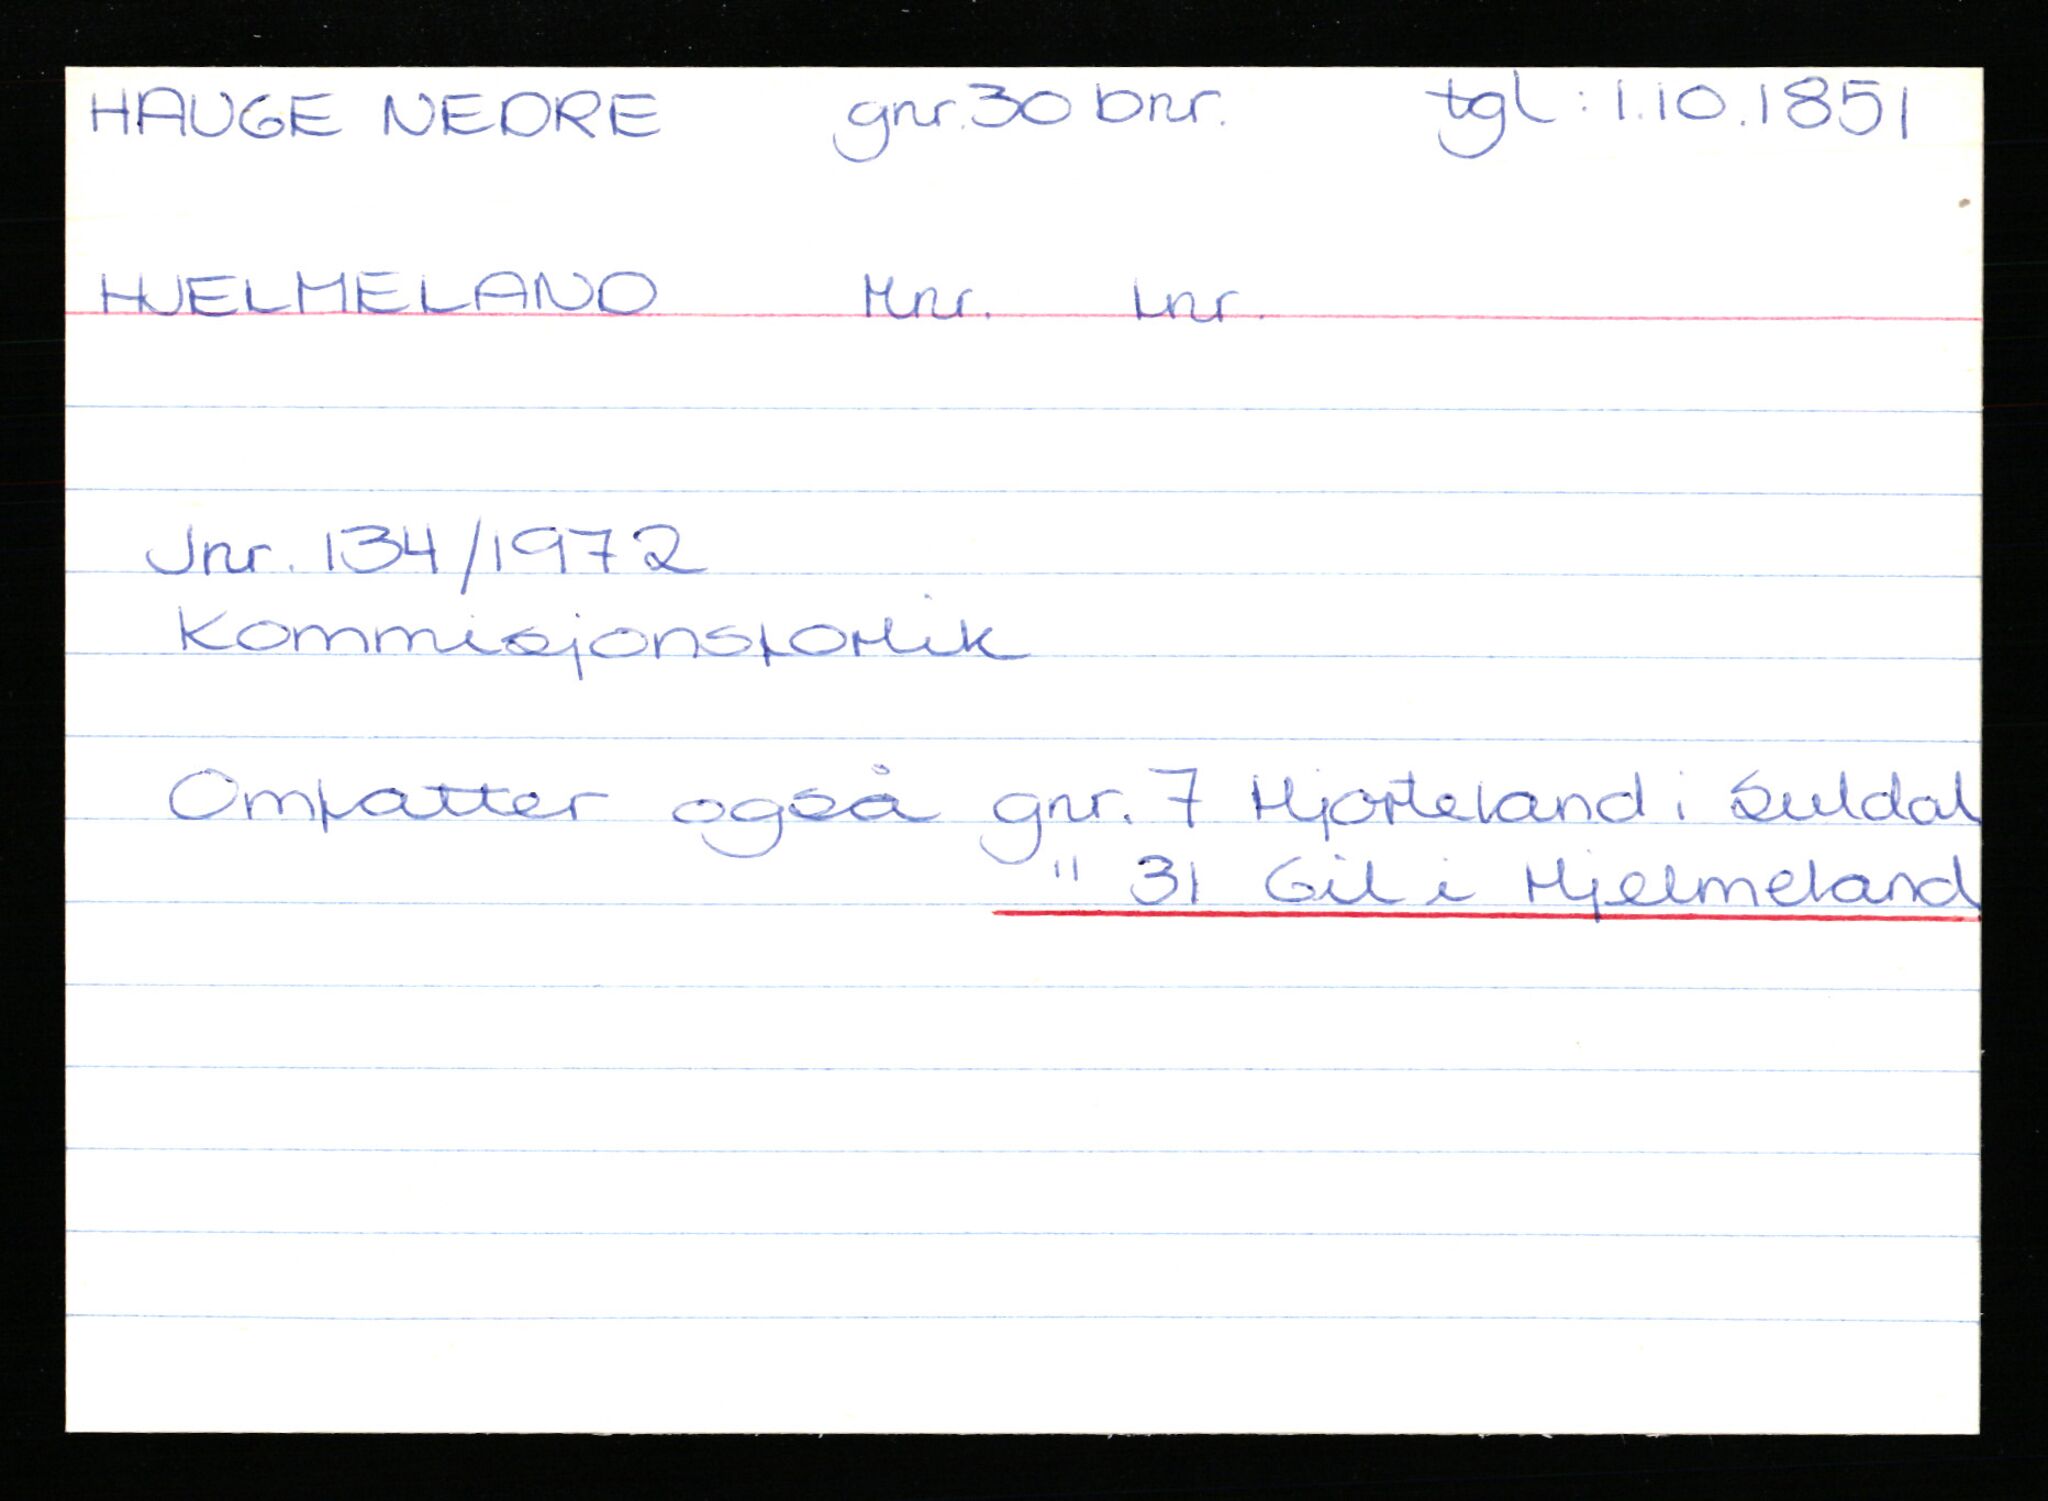 HAUGE NEDRE gnr. 30 bnr. tgl: 1.10.1851
HJELMELAND Mnr. Lnr.
Jnr. 134/1972
Kommisjonsforlik
Omfatter også gnr. 7 Hjorteland i Suldal
" 31 Gil i Hjelmeland